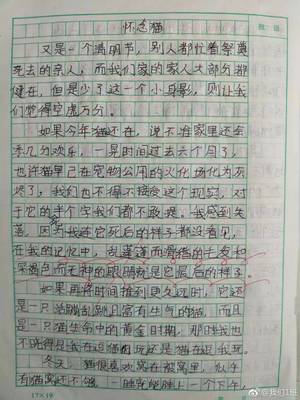 怀念猫
又是一个清明节，别人都忙着祭奠
死去的亲人，而我们家的家人大部分都
健在，但是少了这一个小身影，则让我
们觉得空虚万分。
如果今年猫还在，说不准家里还会
添几分欢乐，一晃时间过去六个月了，
也许猫早已在宠物公园的火化场化为灰
烬了，我们也不得不接受这个现实，对
于它的半个字我们都不敢提。我感到失
落，因为我连它死后的样子都没看见，
在我的记忆中，乱蓬蓬而滑稽的毛发和
呆褐色而无神的眼睛就是它最后的样子。
如果再将时间推到更久远时，它还
是一只活蹦乱跳且富有生气的猫，而且
是一只猫生命中的黄金时期，那时我也
不晓得是我在逗猫玩还是猫在逗我玩。
冬天，猫很喜欢窝在被窝里，似乎
有猫窝还不够，一睡就能睡上一个下午，
17×19
@我们1班